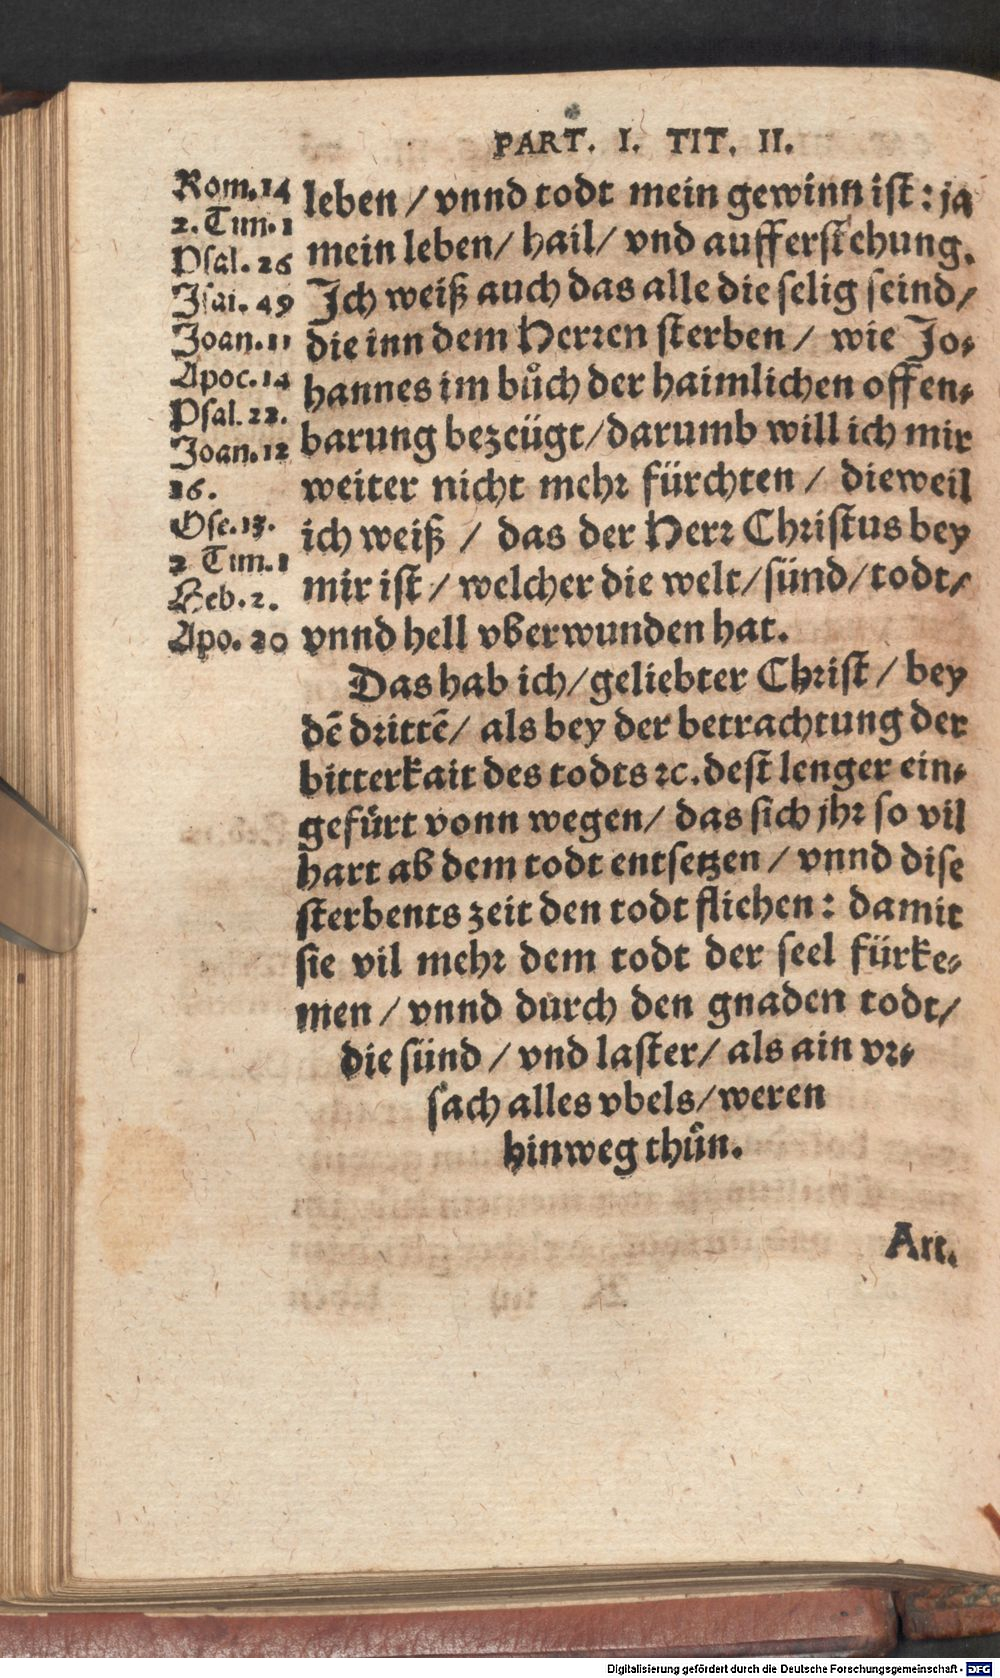 PART. I. TIT. II.
Rom. 14
2. Tim. 1
Psal. 26
Isai. 49
Joan. 11
Apoc. 14
Psal. 22.
Joan. 12
16.
Ose. 13.
2 Tim. 1
Heb. 2.
Apo. 20
leben / vnnd todt mein gewinn ist: ja
mein leben / hail / vnd aufferstehung.
Ich weiß auch das alle die selig seind /
die inn dem Herren sterben / wie Jo-
hannes im bůch der haimlichen offen-
barung bezeügt / darumb will ich mir
weiter nicht mehr fürchten / dieweil
ich weiß / das der Herr Christus bey
mir ist / welcher die welt / sünd / todt /
vnnd hell vberwunden hat.
Das hab ich / geliebter Christ / bey
dē drittē / als bey der betrachtung der
bitterkait des todts ꝛc. dest lenger ein-
gefürt vonn wegen / das sich jhr so vil
hart ab dem todt entsetzen / vnnd dise
sterbents zeit den todt fliehen: damit
sie vil mehr dem todt der seel fürke-
men / vnnd durch den gnaden todt /
die sünd / vnd laster / als ain vr-
sach alles vbels / weren
hinweg thůn.
Art.
Digitalisierung gefördert durch die Deutsche Forschungsgemeinschaft - DFG